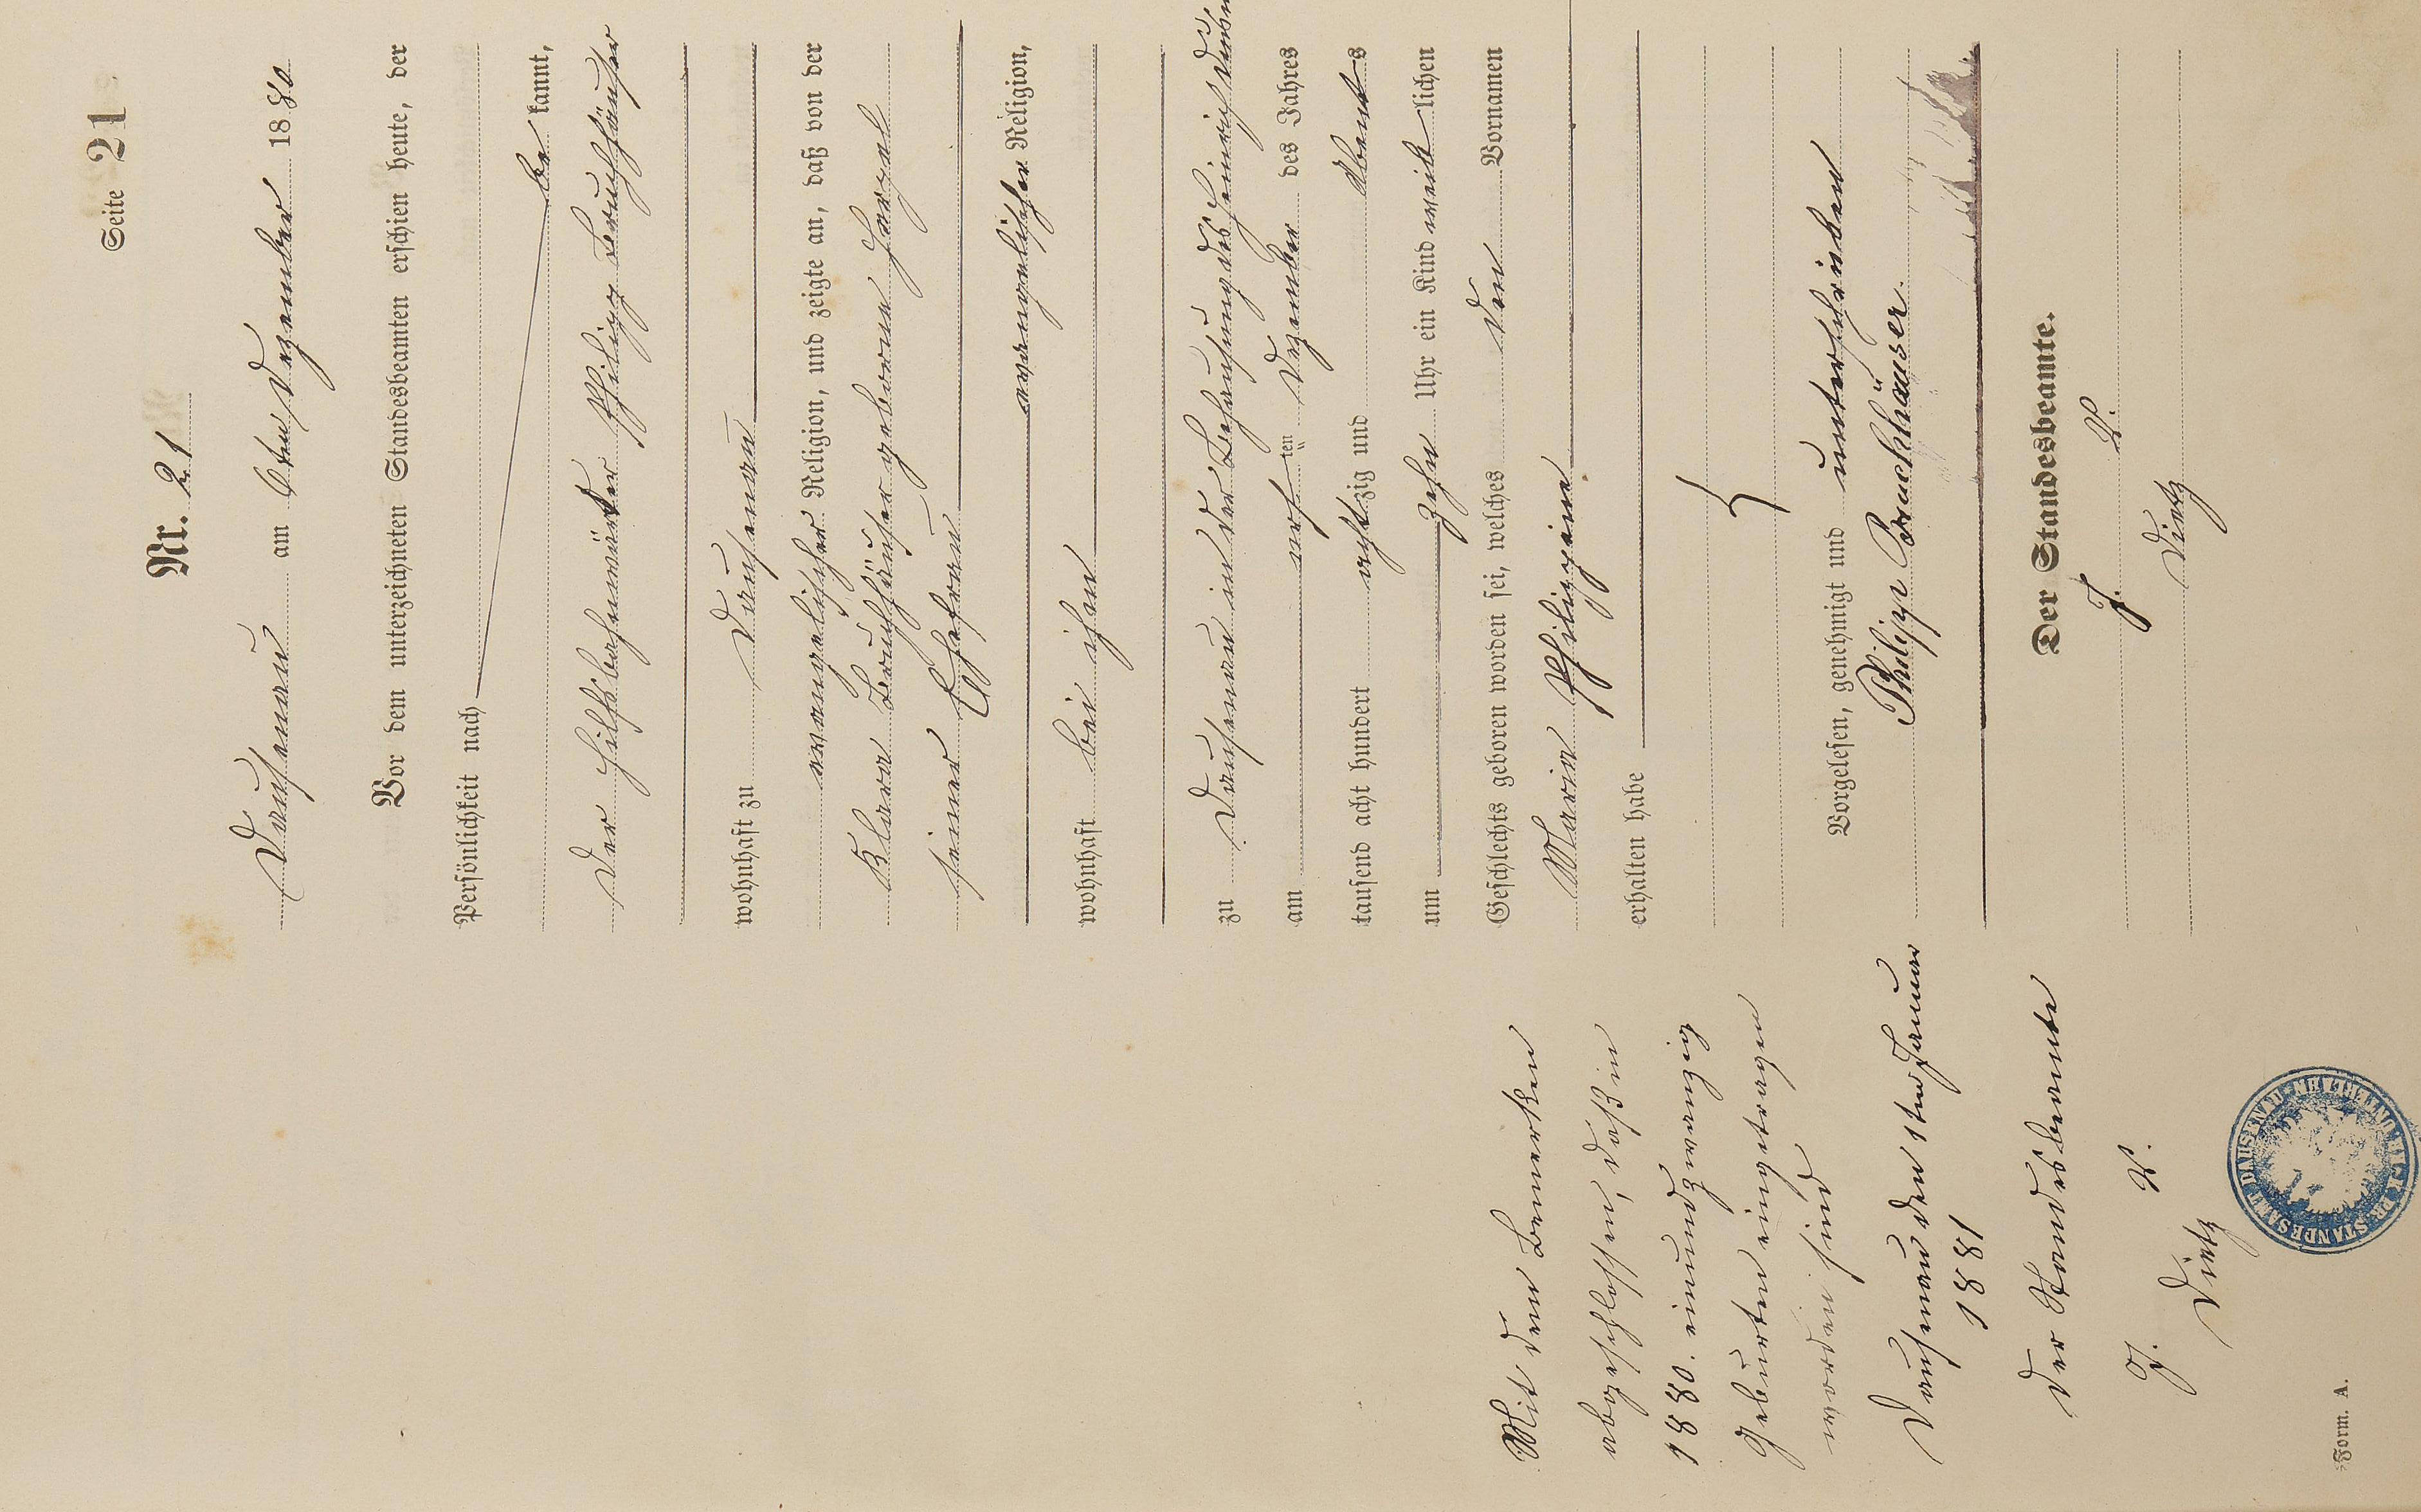 Seite 21
Nr. 21
Dausenau am 6ten Dezember 1880
Vor dem unterzeichneten Standesbeamten erschien heute, der
Persönlichkeit nach
be kannt,
der Hilfsbahnwärter Philipp Bruchhäuser
wohnhaft zu Dausenau
evangelischer Religion, und zeigte an, daß von der
Klara Bruchhäuser geborene
seiner Ehefrau
evangelischer Religion,
wohnhaft bei ihm
zu Dausenau in der Behausung des Heinrich
am ten Dezember des Jahres
tausend acht hundert achtzig und Abends
um zehn Uhr ein Kind weib lichen
Geschlechts geboren worden sei, welches den Vornamen
Maria Philippine
erhalten habe
Vorgelesen, genehmigt und unterschrieben
Philipp Bruchhäuser.
Der Standesbeamte.
J. V.
Dietz
Mit dem Bemerken
abgeschlossen, daß in
1880. einundzwanzig
Geburten eingetragen
worden sind
Dausenau den 1ten Januar
1881
Der Standesbeamte
J. V.
Dietz
K. PR. STANDESAMT DAUSENAU UNTERLAHN KR.
Form. A.